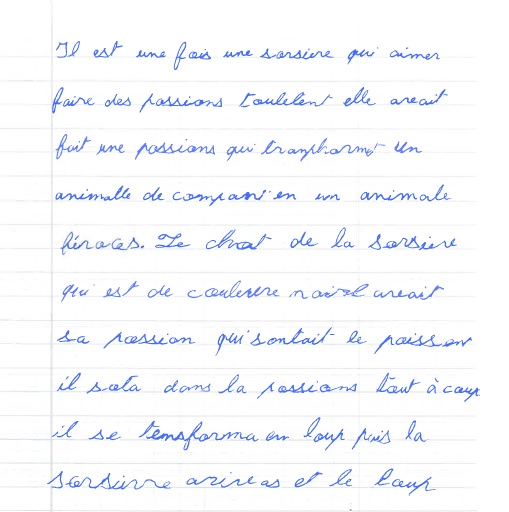 Il est une fois une sorsiere qui aimer
faire des possions toutletent elle areait
fait une possions qui transphormet un
animalle de compani en un animale
féroces. Le chat de la sorsiere
qui est de coulerere noire areait
sa possion qui sontait le poisson
il sota dans la possions tout à coup
il se temsforma en loup puis la
sorsierre arireas et le loup